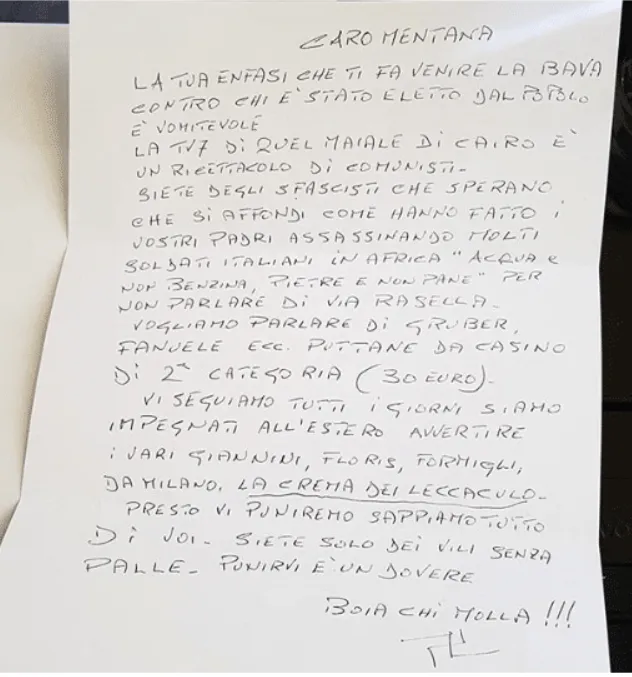 CARO MENTANA
LA TUA ENFASI CHE TI FA VENIRE LA BAVA
CONTRO CHI E' STATO ELETTO DAL POPOLO
E' VOMITEVOLE
LA TV7 DI QUEL MAIALE DI CAIRO E'
UN RICETTACOLO DI COMUNISTI-
SIETE DEGLI SFASCISTI CHE SPERANO
CHE SI AFFONDI COME HANNO FATTO I
VOSTRI PADRI ASSASSINANDO MOLTI
SOLDATI ITALIANI IN AFRICA "ACQUA E
NON BENZINA, PIETRE E NON PANE" PER
NON PARLARE DI VIA RASELLA-
VOGLIAMO PARLARE DI GRUBER,
FANUELE ECC. PUTTANE DA CASINO
DI 2ª CATEGORIA (30 EURO)-
VI SEGUIAMO TUTTI I GIORNI SIAMO
IMPEGNATI ALL'ESTERO AVVERTIRE
I VARI GIANNINI, FLORIS, FORMIGLI,
DA MILANO, LA CREMA DEI LECCACULO-
PRESTO VI PUNIREMO SAPPIAMO TUTTO
DI VOI- SIETE SOLO DEI VILI SENZA
PALLE- PUNIRVI E' UN DOVERE
BOIA CHI MOLLA!!!